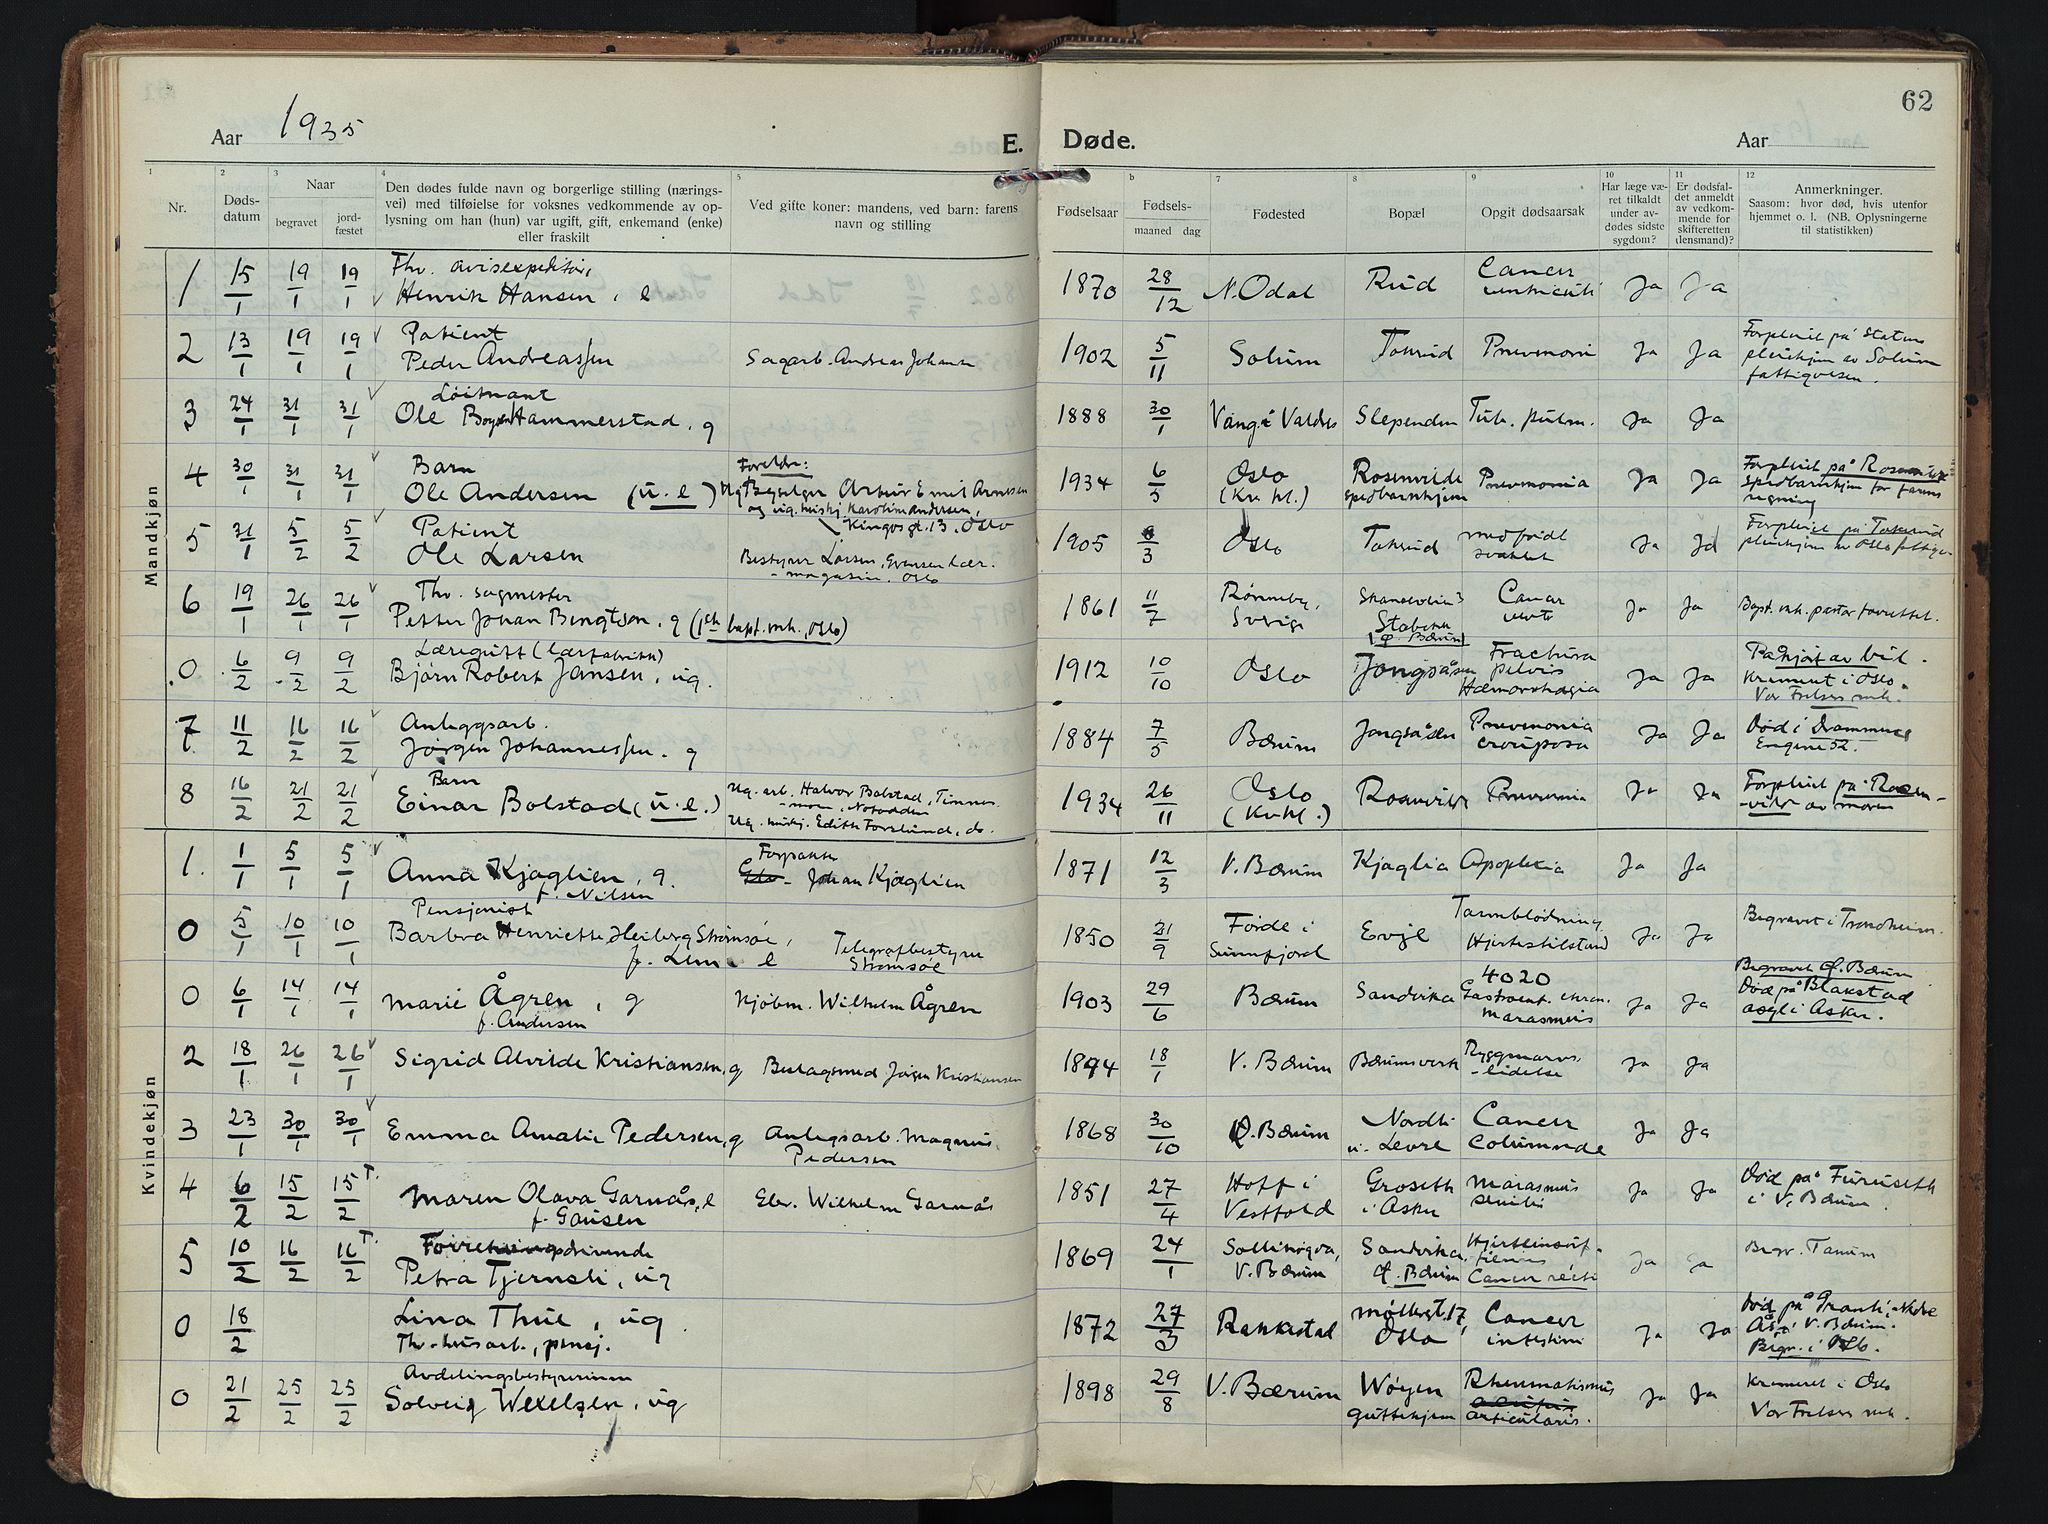 62
Aar 1935
E. Døde.
Aar
1 2 3 4 5 7 8 9 10 11 12
Nr.
Døds-
datum
Naar
begravet
jord-
fæstet
Den dødes fulde navn og borgerlige stilling (nærings-
vei) med tilføielse for voksnes vedkommende av op-
lysning om han (hun) var ugift, gift, enkemand (enke)
eller fraskilt
Ved gifte koner: mandens, ved barn: farens
navn og stilling
Fødselsaar
b
Fødsels-
maaned dag
Fødested
Bopæl
Opgit dødsaarsak
Har læge væ-
ret tilkaldt
under av-
dødes sidste
sygdom?
Er dødsfal-
det anmeldt
av vedkom-
mende for
skifteretten
(lensmand)?
Anmerkninger.
Saasom: hvor død, hvis utenfor
hjemmet o. l. (NB. Oplysningerne
til statistikken)
Mandkjøn
1 15/1 19/1 19/1 Fhv. avisexpeditør,
Henrik Hansen, e 1870 28/12 N. Odal Rud Cancer
ventriculi Ja Ja
2 13/1 19/1 19/1 Patient
Peder Andreassen Sagarb. Andreas Johansen 1902 5/11 Solum Tokerud Pnevmoni Ja Ja Forpleiet på Statens
pleiehjem av Solum
fattigvesen.
3 24/1 31/1 31/1 Løitnant
Ole Hammerstad, g 1888 30/1 Vang i Valdres Slependen Tub. pulm. Ja Ja
4 30/1 31/1 31/1 Barn
Ole Andersen (u. e) Foreldre:
Arthur Emil
og ug. hushj. Karoline Andersen,
Kingosgt. 13, Oslo 1934 6/5 Oslo
(Kv. kl.) Rosenvilde
spedbarnhjem Pnevmonia Ja Ja Forpleiet på Rosenvilde
spedbarnhjem for farens
regning
5 31/1 5/2 5/2 Patient
Ole Larsen Bestyrer Larsen, Grensen lær-
magasin, Oslo 1905 /3 Oslo Tokerud medfødt
svakhet Ja Ja Forpleiet på Tokerud
pleiehjem av Oslo
6 19/1 26/1 26/1 Fhv. sagmester
Petter Johan Bengtson, g (1ste bapt. mh., Oslo) 1861 11/7 Rønneby,
Sverige
Stabekk
(Ø. Bærum) Cancer Ja Ja Bapt. mh. pastor forrettet.
0 6/2 9/2 9/2 Læregutt (lærfabrikk)
Bjørn Robert Jansen, ug. 1912 10/10 Oslo Jongsåsen Fractura
pelvis
Hæmorrhagia Ja Ja Påkjørt av bil.
Kremert i Oslo.
Vor Frelsers mh.
7 11/2 16/2 16/2 Anleggsarb.
Jørgen Johannessen, g 1884 7/5 Bærum Jongsåsen Pnevmonia
crouposa Ja Ja Død i Drammen
Engene 52.
8 16/2 21/2 21/2 Barn
Einar Bolstad (u. e.) Ug. arb. Halvor Bolstad, Tinnes-
moen, Notodden
Ug. hushj. Edith Forslund, do. 1934 26/11 Oslo
(Kv kl.) Rosenvilde Pnevmonia Ja Ja Forpleiet på Rosen-
vilde av moren
Kvindekjøn
1. 1/1 5/1 5/1 Anna Kjaglien, g.
f. Nilsen Forpakter
Johan Kjaglien 1871 12/3 V. Bærum Kjaglia Apoplexia Ja Ja
0 5/1 10/1 10/1 Pensjonist
Barbra Henriette Heiberg Strømsøe,
f. Lem e Telegrafbestyrer
Strømsøe 1850 21/9 Førde i
Sunnfjord Evje Tarmblødning
Hjertestilstand Ja Ja Begravet i Trondheim.
0 6/1 14/1 14/1 Marie Ågren, g
f. Andersen Kjøbm. Wilhelm Ågren 1903 29/6 Bærum Sandvika 4020
Gastroent. chron.
Marasmus Ja Ja Begravet Ø. Bærum
Død på Blakstad
asyl i Asker.
2 18/1 26/1 26/1 Sigrid Alvilde Kristiansen, g Beslagsmed Jørgen Kristiansen 1894 18/1 V. Bærum Bærumsverk Ryggmarvs-
lidelse Ja Ja
3 23/1 30/1 30/1 Emma Amalie Pedersen, g Anlegsarb. Magnus
Pedersen 1868 30/10 Ø. Bærum Nordli
u. Levre Cancer
columnæ Ja Ja
4 6/2 15/2 15/2 T. Maren Olava Garnås, e
f. Gausen Elev. Wilhelm Garnås 1851 27/4 Hoff i
Vestfold Groseth
i Asker Marasmus
senilis Ja Ja Død på Furuseth
i V. Bærum.
5 10/2 16/2 16/2 T. Forretningsdrivende
Petra Tjernsli, ug 1869 24/1 Sollihøgda,
V. Bærum Sandvika,
Ø. Bærum Hjerteinsuf-
ficiens
Cancer recti Ja Ja Begr. Tanum
0 18/2 Lina Thue, ug.
Fhv. husarb., pensj. 1872 27/3 Rakkestad Møllergt. 17,
Oslo Cancer
intestini Ja Ja Død på
V. Bærum.
Begr. i Oslo.
0 21/2 25/2 25/2 Avdelingsbestyrerinne
Solveig Wexelsen, ug 1898 29/8 V. Bærum Wøyen
guttehjem Rheumatismus
articularis. Ja Ja Kremert i Oslo
Vor Frelsers mh.